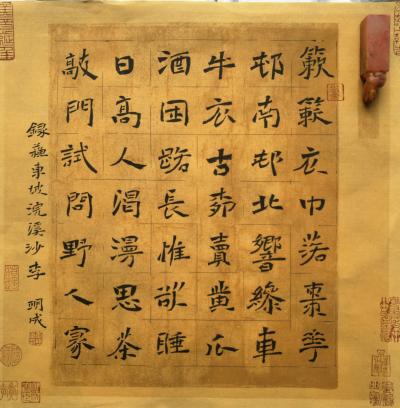 簌簌衣巾落棗華
邨南邨北響繰車
牛衣古柳賣黃瓜
酒困路長惟欲睡
日高人渴漫思茶
敲門試問野人家
錄蘇東坡浣溪沙 李明成